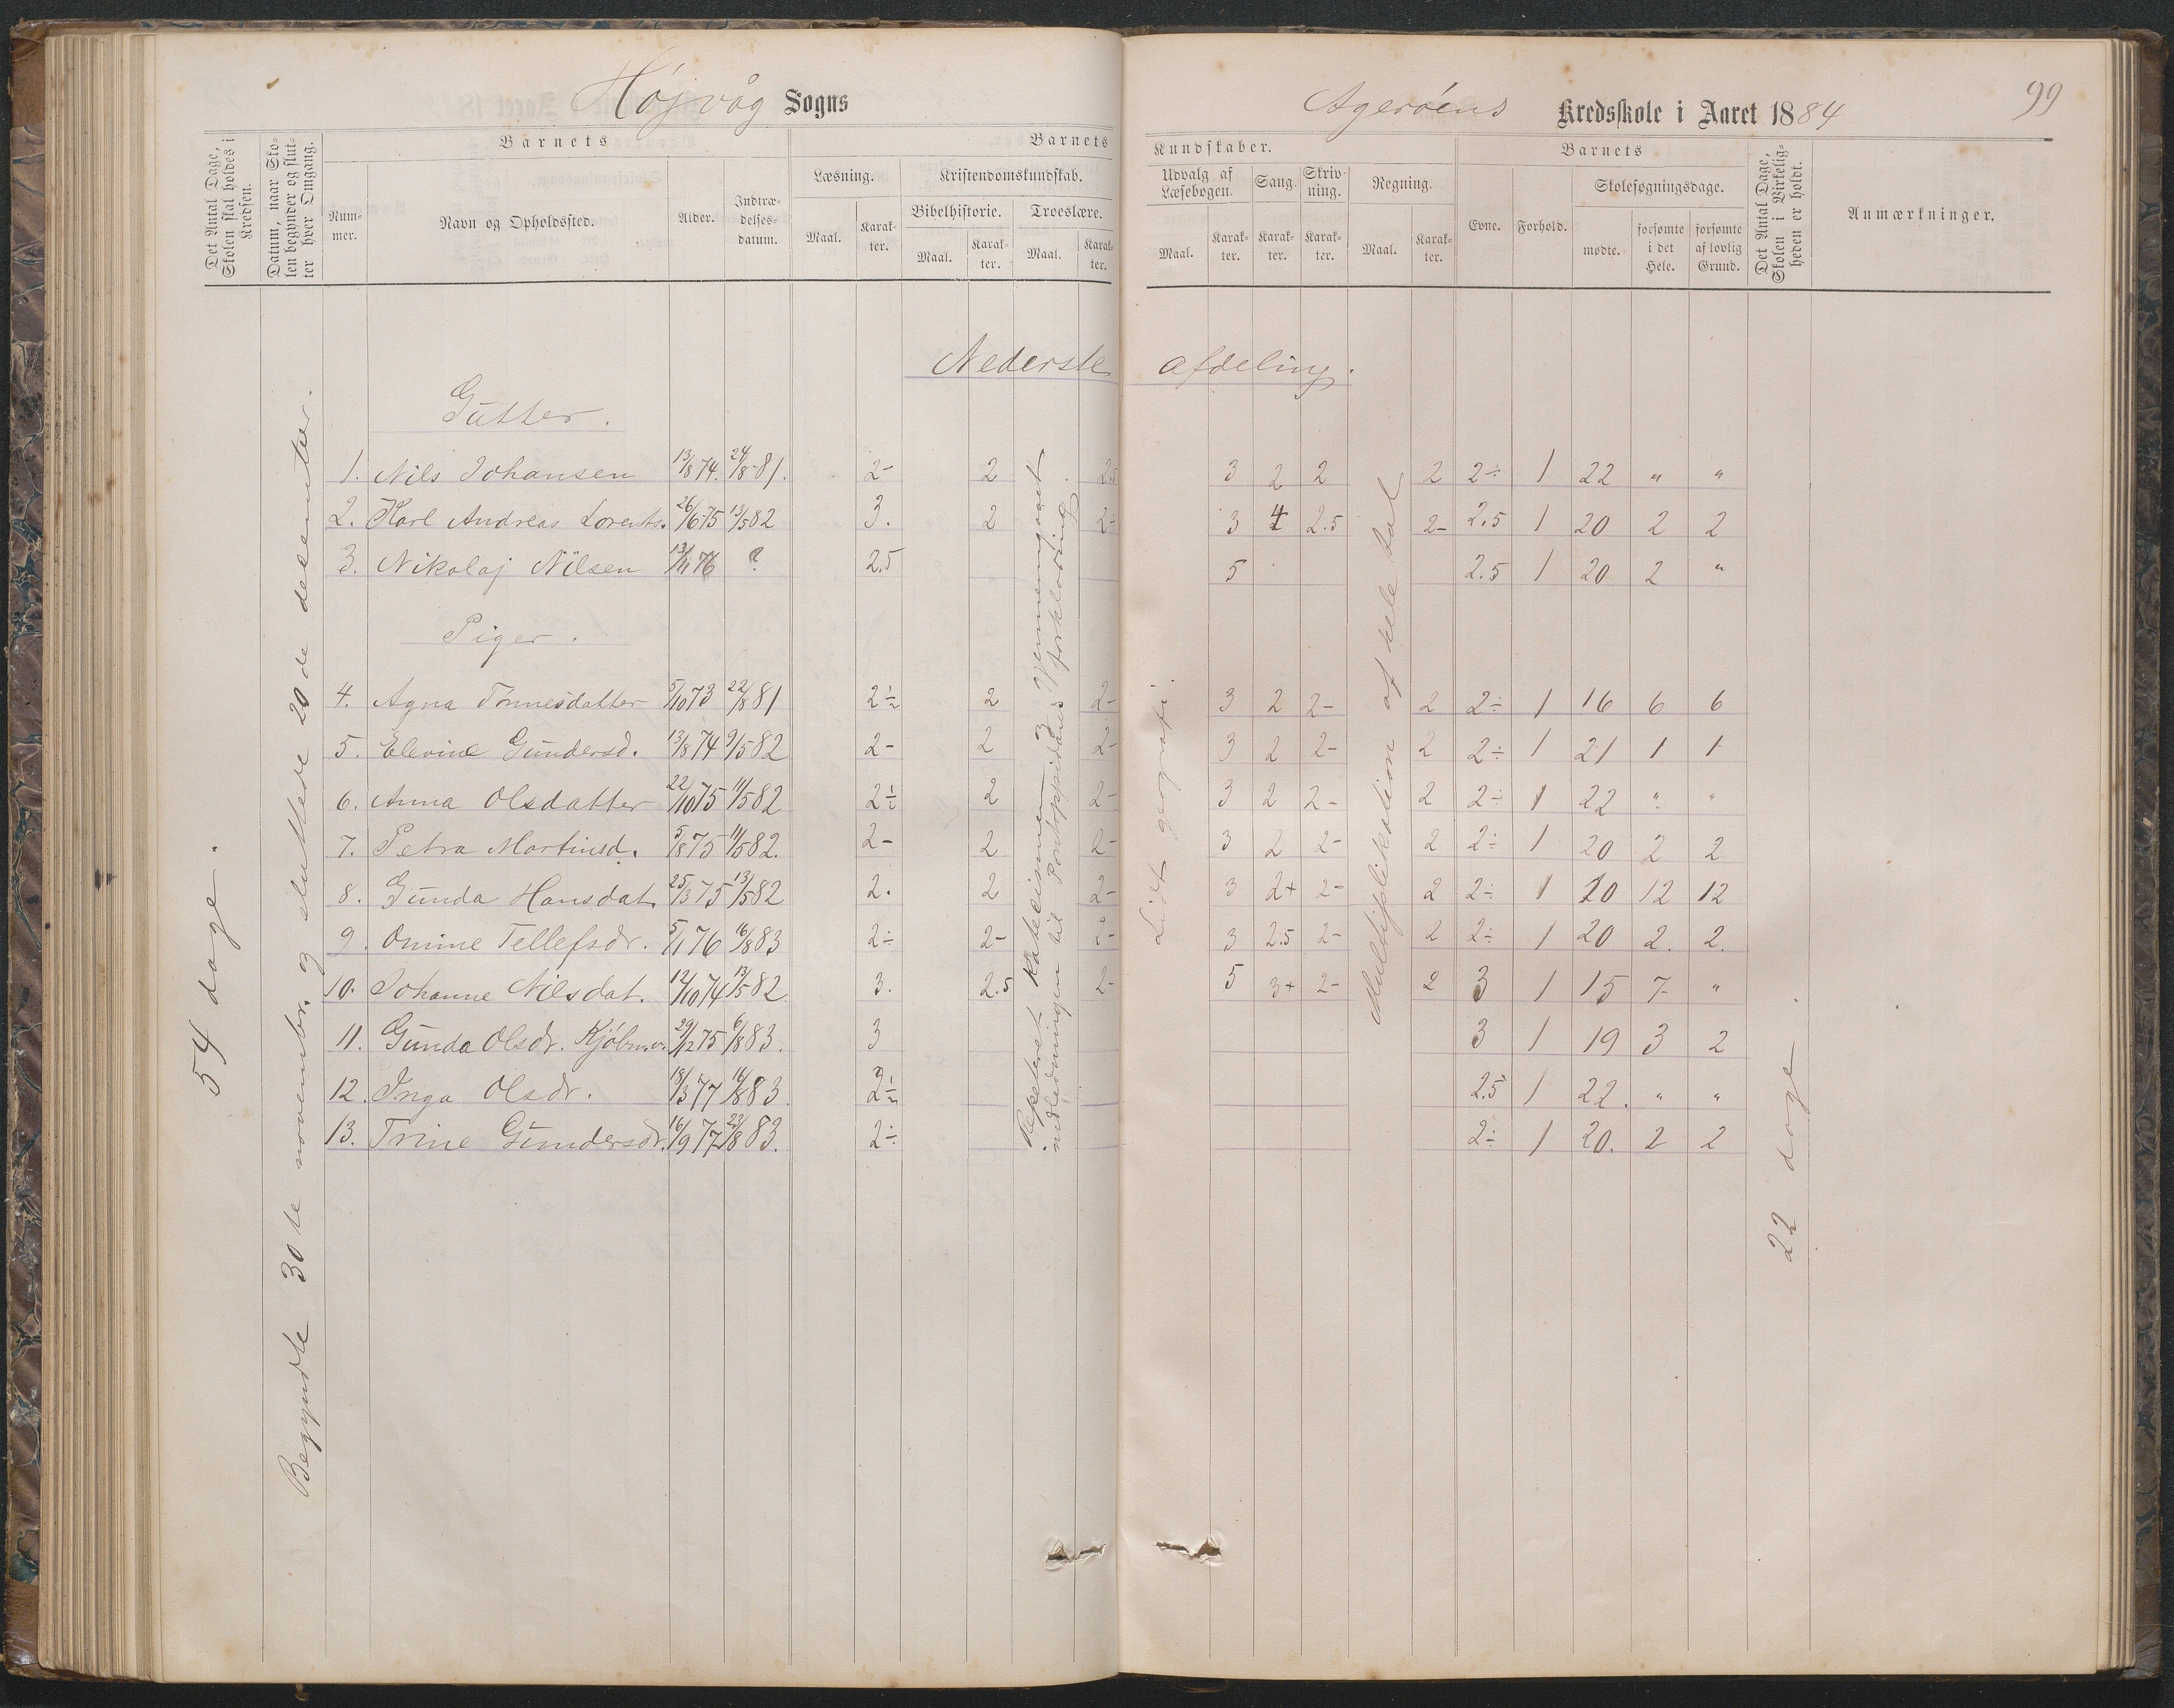 99
Højvåg Sogns
Agerøens Kredsskole i Aaret 1884
Det Antal Dage, Skolen skal holdes i Kredsen.
Datum, naar Skolen begynder og slutter hver Omgang.
Barnets
Barnets
Kundskaber.
Barnets
Det Antal Dage, Skolen i Virkeligheden er holdt.
Anmærkninger.
Nummer.
Navn og Opholdssted.
Alder.
Indtrædelsesdatum.
Læsning.
Kristendomskundskab.
Udvalg af Læsebogen.
Sang.
Skrivning.
Regning.
Evne.
Forhold.
Skolesøgningsdage.
Maal.
Karakter.
Bibelhistorie.
Troeslære.
Maal.
Karakter.
Maal.
Karakter.
Maal.
Karakter.
Karakter.
Karakter.
Maal.
Karakter.
mødte.
forsømte i det Hele.
forsømte af lovlig Grund.
Nederste afdeling.
Gutter.
1. Nils Johansen 13/8 74. 24/8 81. 2- 2 2.5 3 2 2 2 2÷ 1 22 " "
2. Karl Andreas Lorents. 26/6 75 13/5 82 3. 2 2- 3 4 2.5 2- 2.5 1 20 2 2
3. Nikolaj Nilsen 13/11 76 ? 2.5 5 2.5 1 20 2 "
Piger.
4. Agna Tønnesdatter 5/10 73 22/8 81 2÷ 2 2- 3 2 2- 2 2÷ 1 16 6 6
5. Elevine Gundersd. 13/8 74 9/5 82 2- 2 2- 3 2 2- 2 2÷ 1 21 1 1
6. Anna Olsdatter 22/10 75 11/5 82 2÷ 2 2- 3 2 2- 2 2÷ 1 22 " "
7. Petra Martinsd. 5/8 75 11/5 82. 2- 2 2- 3 2 2- 2 2÷ 1 20 2 2
8. Gunda Hansdat. 25/3 75 13/5 82 2. 2 2- 3 2+ 2- 2 2÷ 1 10 12 12
9. Omine Tellefsdr. 5/1 76 16/8 83 2÷ 2- 2- 3 2.5 2- 2 2÷ 1 20 2. 2.
10. Johanne Nilsdat. 12/10 74 13/5 82 3. 2.5 2- 5 3+ 2- 2 3 1 15 7 "
11. Gunda Olsdr. 29/12 75 6/8 83. 3 3 1 19 3 2
12. Inga Olsdr. 18/3 77 16/8 83. 2÷ 2.5 1 22. " "
13. Trine Gundersdr. 16/9 77 23/8 83. 2÷ 2÷ 1 20. 2 2
54 dage.
Begyndte 30te novembr. og sluttede 20de decemter.
Repeteret katecismen. Gjennemgaaet indledningen til Pontoppidans forklaring.
Lidt geografi.
Multiplikation af hele tal
22 dage.